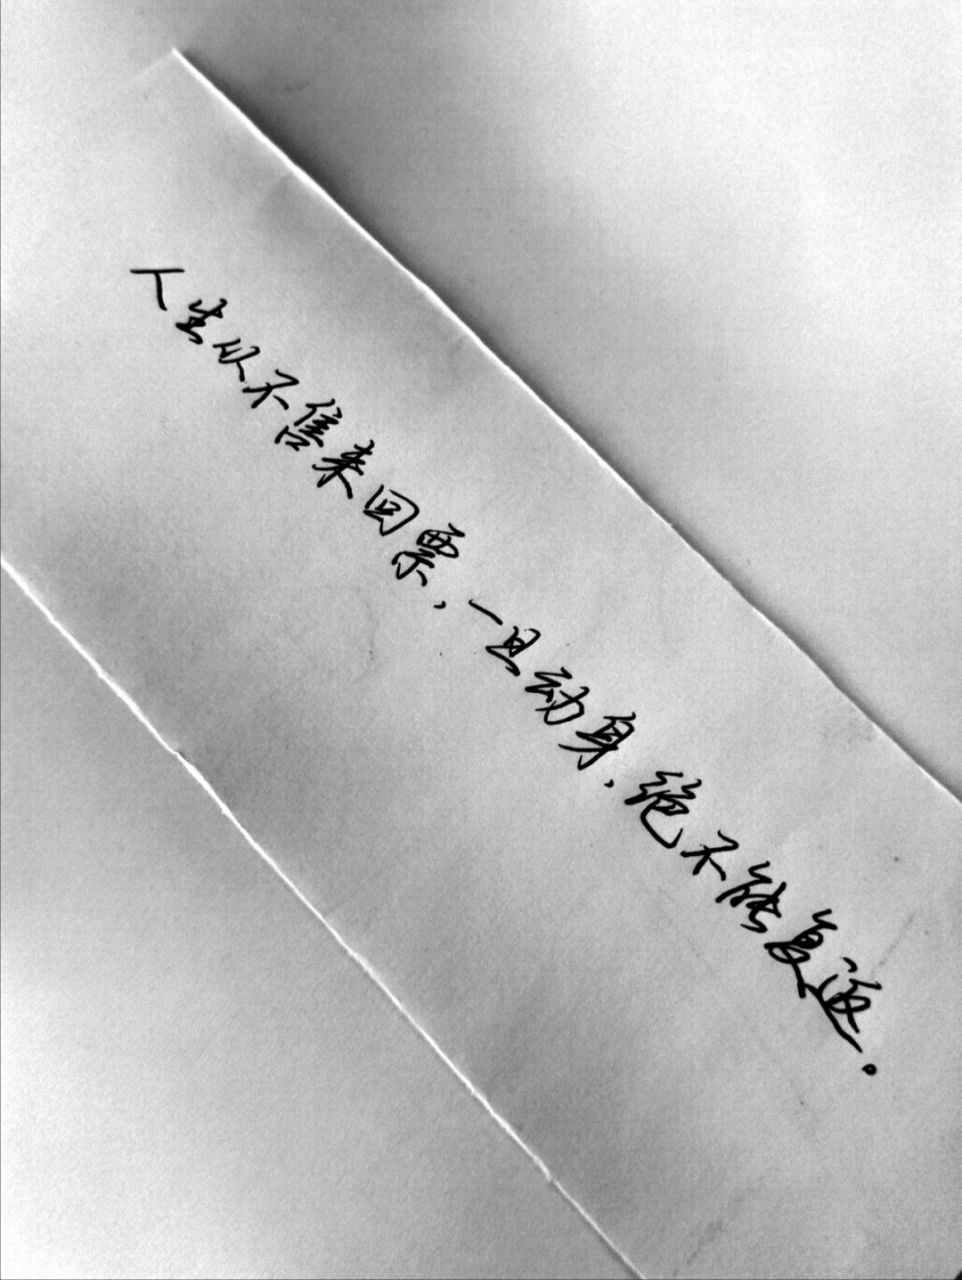 人生从不售来回票，一旦动身，绝不能复返。